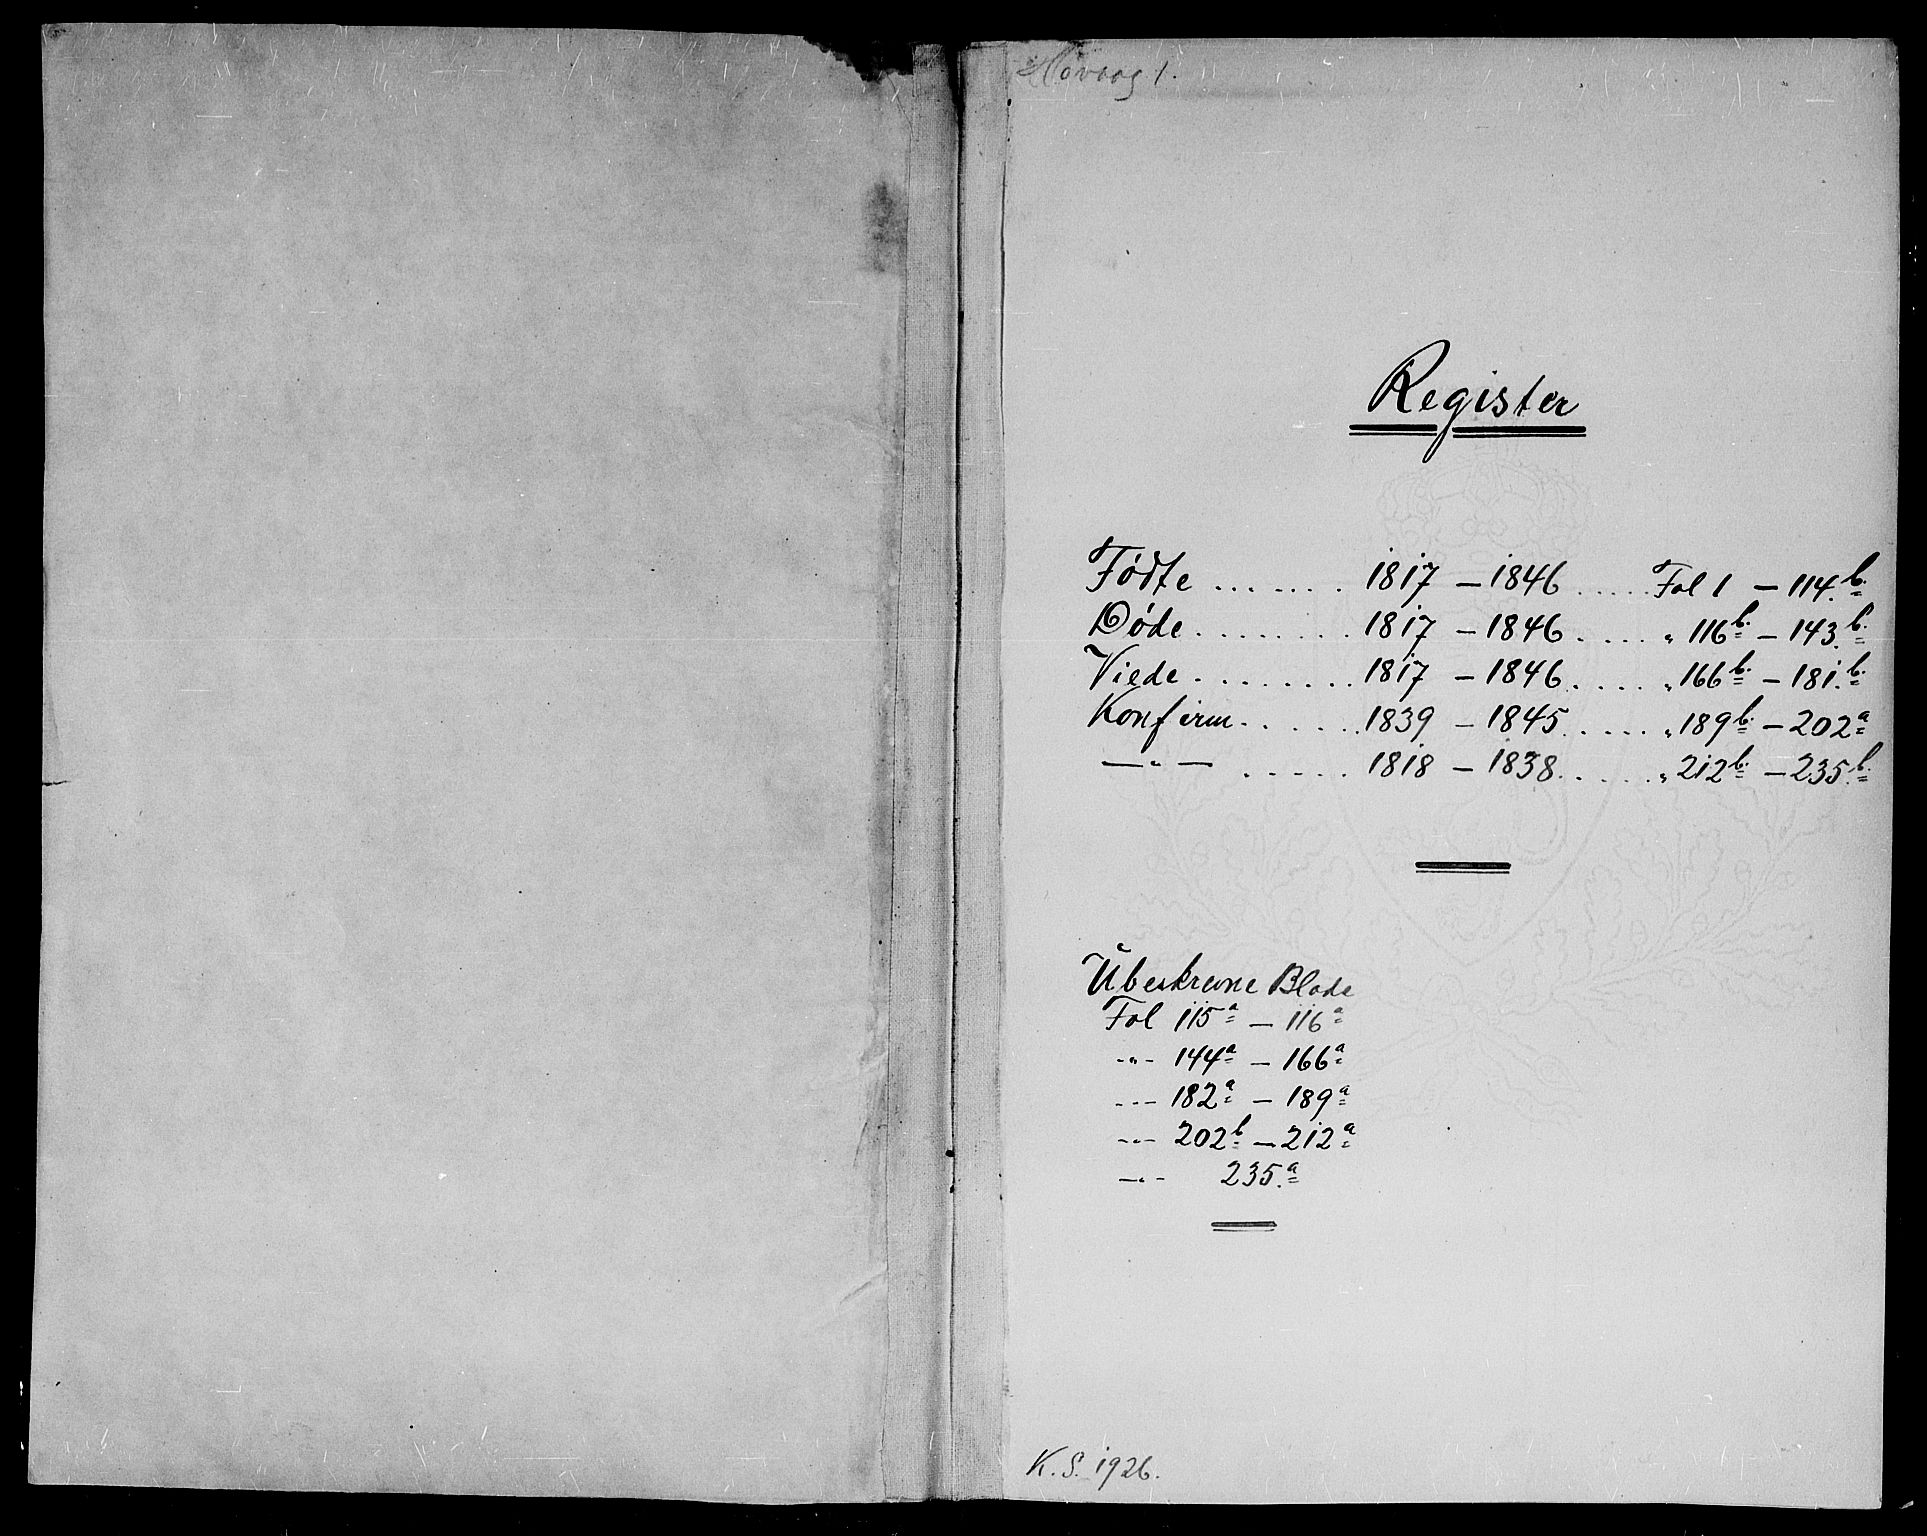 Høvaag 1.
Register
Fødte ....... 1817 – 1846 ..... Fol 1 – 114.b.
Døde ........ 1817 – 1846 ..... " 116b. – 143.b.
Viede ........ 1817 – 1846 ..... " 166b. – 181.b.
Konfirm ...... 1839 – 1845 ..... " 189b. – 202a
— " — ..... 1818 – 1838 ..... " 212b. – 235.b.
Ubeskrevne Blade
Fol 115a – 116a
-"- 144a – 166a
-"- 182a – 189a
-"- 202b – 212a
-"- 235.a
K. S. 1926.